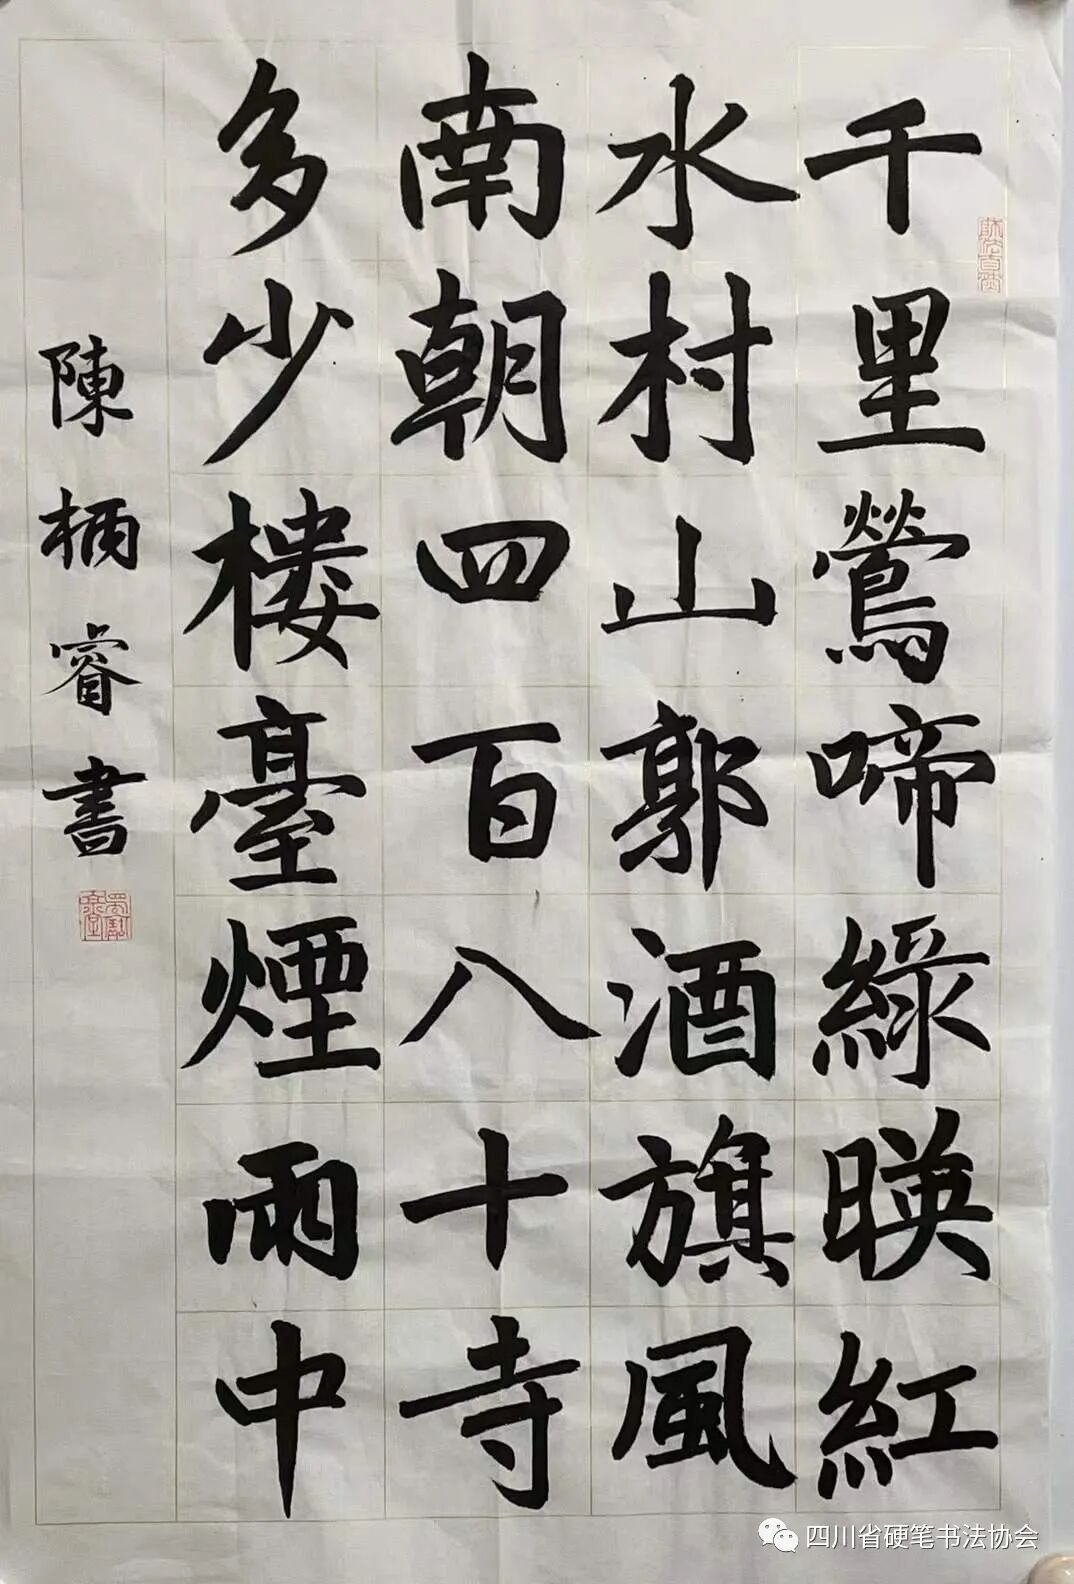 千里鶯啼綠暎紅
水村山郭酒旗風
南朝四百八十寺
多少樓臺煙雨中
陳柄睿書
四川省硬笔书法协会